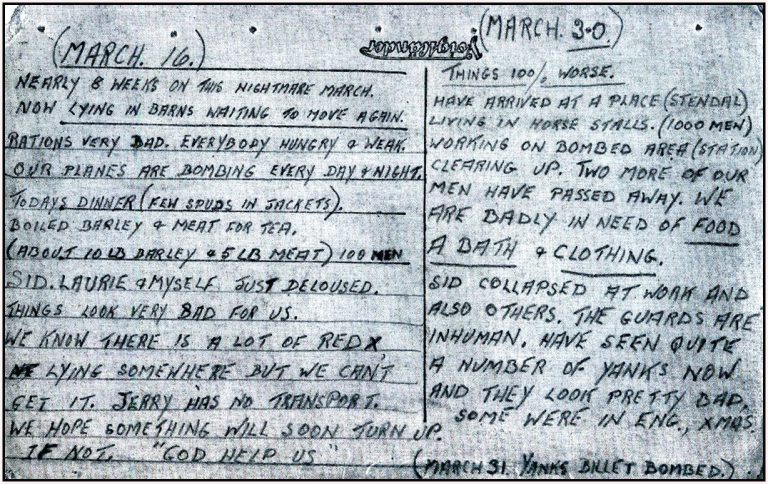 (MARCH. 16.)
NEARLY 8 WEEKS ON THIS NIGHTMARE MARCH.
NOW LYING IN BARNS WAITING TO MOVE AGAIN.
RATIONS VERY BAD. EVERYBODY HUNGRY & WEAK.
OUR PLANES ARE BOMBING EVERY DAY & NIGHT.
TODAYS DINNER (FEW SPUDS IN JACKETS).
BOILED BARLEY & MEAT FOR TEA.
(ABOUT 10 LB BARLEY & 5 LB MEAT) 100 MEN
SID. LAURIE & MYSELF JUST DELOUSED.
THINGS LOOK VERY BAD FOR US.
WE KNOW THERE IS A LOT OF RED X
LYING SOMEWHERE BUT WE CAN'T
GET IT. JERRY HAS NO TRANSPORT.
WE HOPE SOMETHING WILL SOON TURN UP.
IF NOT. "GOD HELP US"
Voigtländer
(MARCH. 30.)
THINGS 100% WORSE.
HAVE ARRIVED AT A PLACE (STENDAL)
LIVING IN HORSE STALLS. (1000 MEN)
WORKING ON BOMBED AREA (STATION)
CLEARING UP. TWO MORE OF OUR
MEN HAVE PASSED AWAY. WE
ARE BADLY IN NEED OF FOOD
A BATH & CLOTHING.
SID COLLAPSED AT WORK AND
ALSO OTHERS. THE GUARDS ARE
INHUMAN. HAVE SEEN QUITE
A NUMBER OF YANKS NOW
AND THEY LOOK PRETTY BAD.
SOME WERE IN ENG., XMAS.
(MARCH 31. YANKS BILLET BOMBED.)